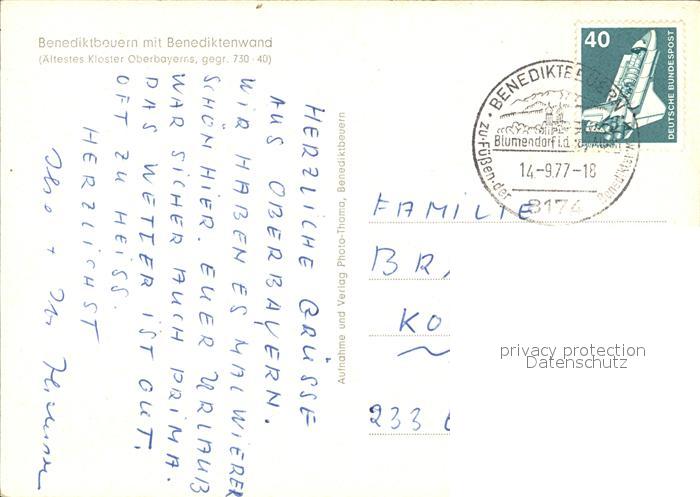 Benediktbeuern mit Benediktenwand
(Ältestes Kloster Oberbayerns, gegr. 730-40)
HERZLICHE GRÜSSE
AUS OBERBAYERN.
WIR HABEN ES MAL WIEDER
SCHÖN HIER. EUER URLAUB
WAR SICHER AUCH PRIMA.
DAS WETTER IST GUT,
OFT ZU HEISS.
HERZLICHST
Aufnahme und Verlag Photo-Thoma, Benediktbeuern
40
DEUTSCHE BUNDESPOST
BENEDIKTBEUERN
Blumendorf i.d.
14.-9.77-18
zu Füßen der
8174
FAMILIE
BR
KO
233
privacy protection
Datenschutz